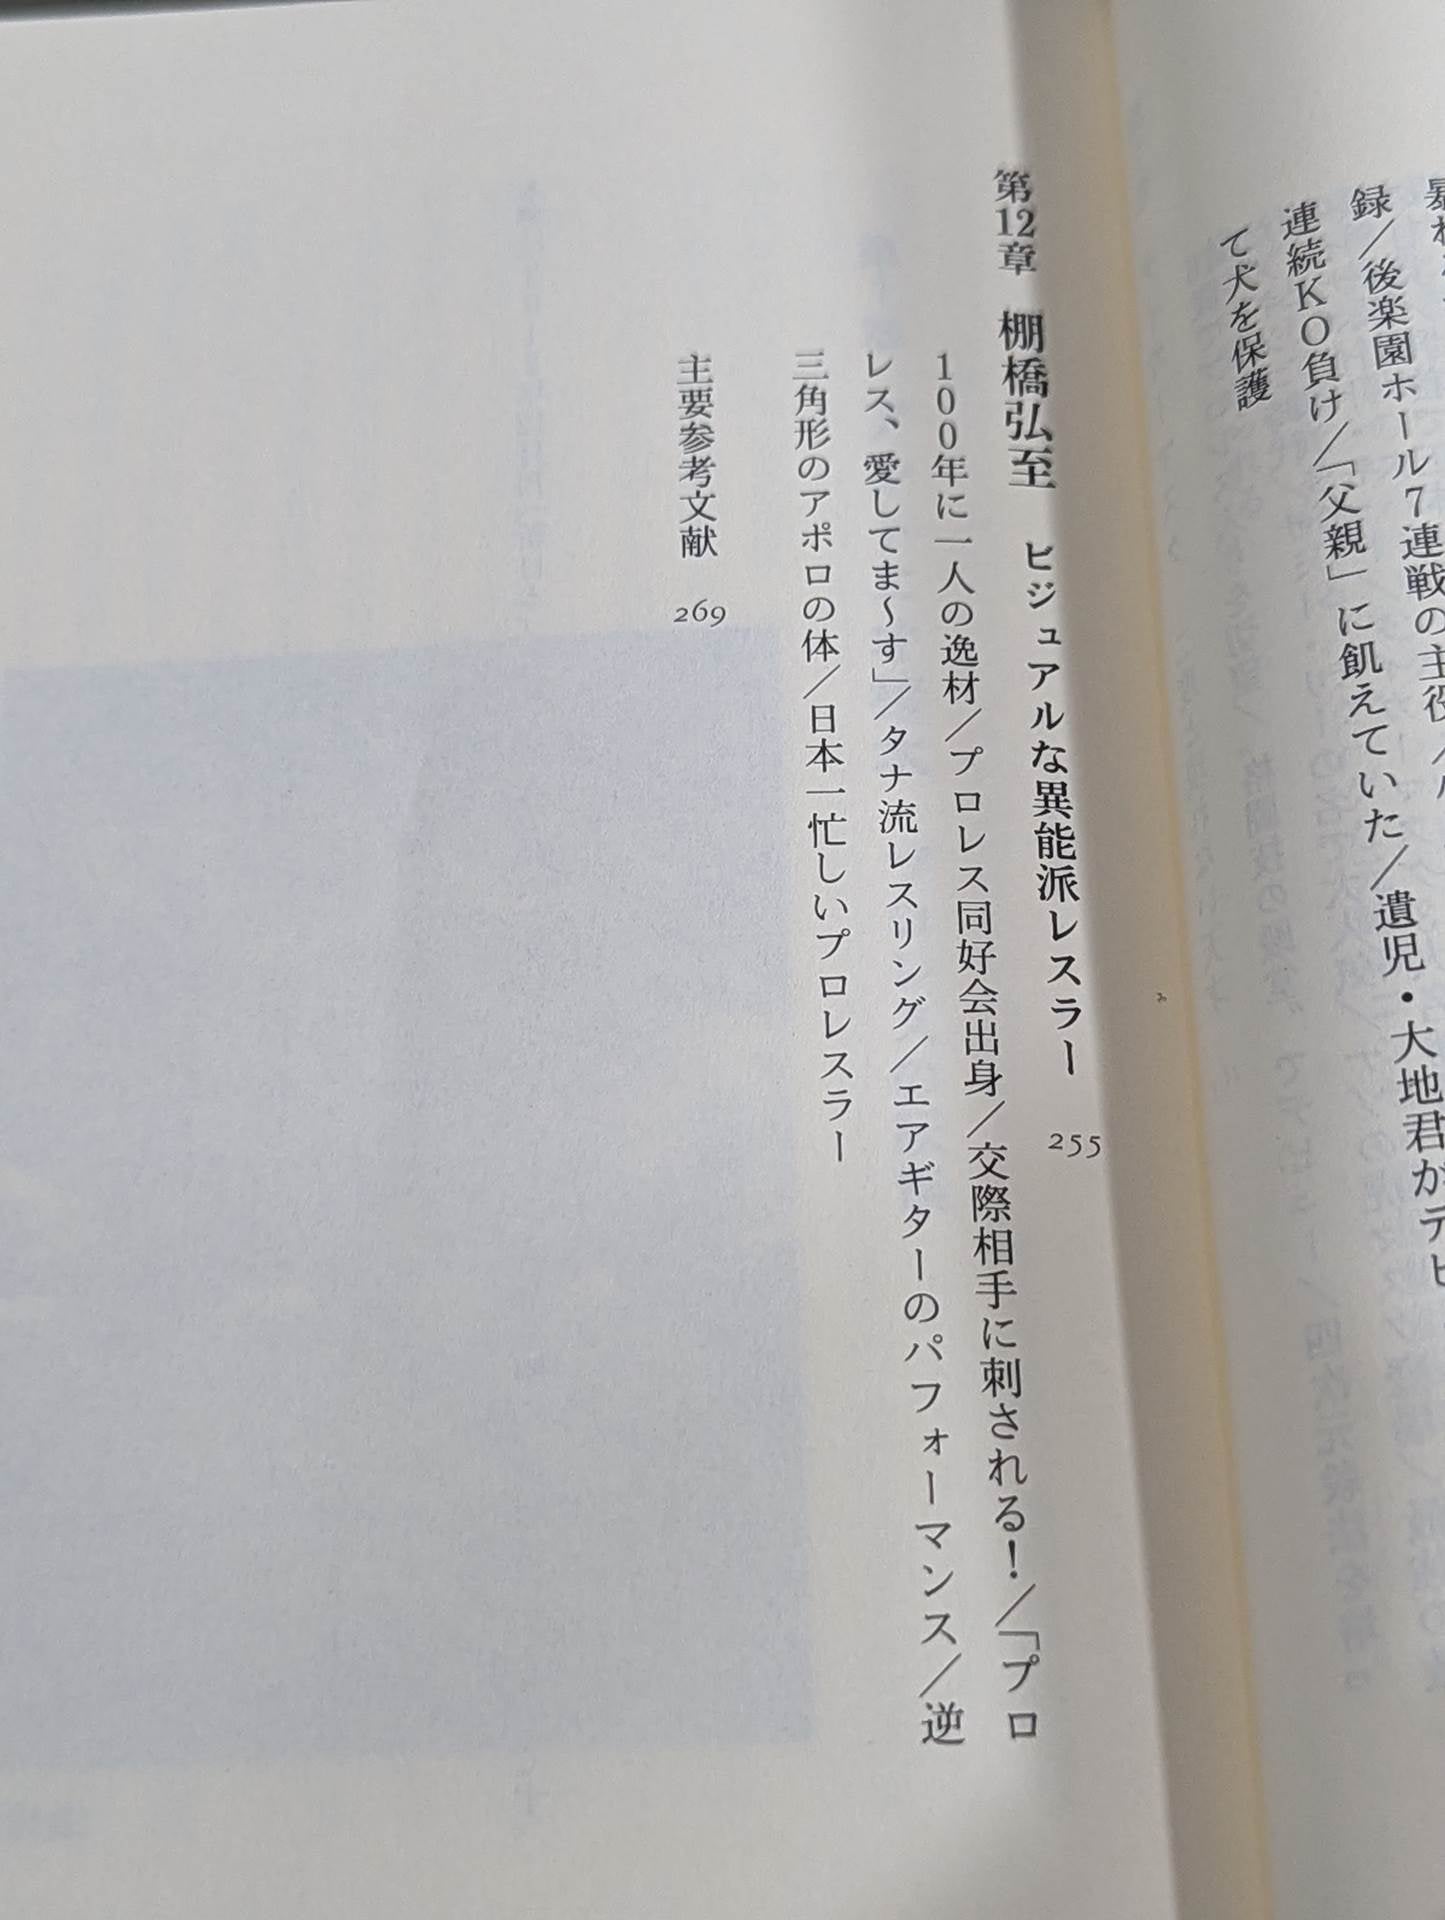 録／後楽園ホール7連戦の主役／
連続KO負け／「父親」に飢えていた／遺児・大地君がデビ
て犬を保護
第12章　棚橋弘至　ビジュアルな異能派レスラー　255
100年に一人の逸材／プロレス同好会出身／交際相手に刺される！／「プロ
レス、愛してま～す」／タナ流レスリング／エアギターのパフォーマンス／逆
三角形のアポロの体／日本一忙しいプロレスラー
主要参考文献　269